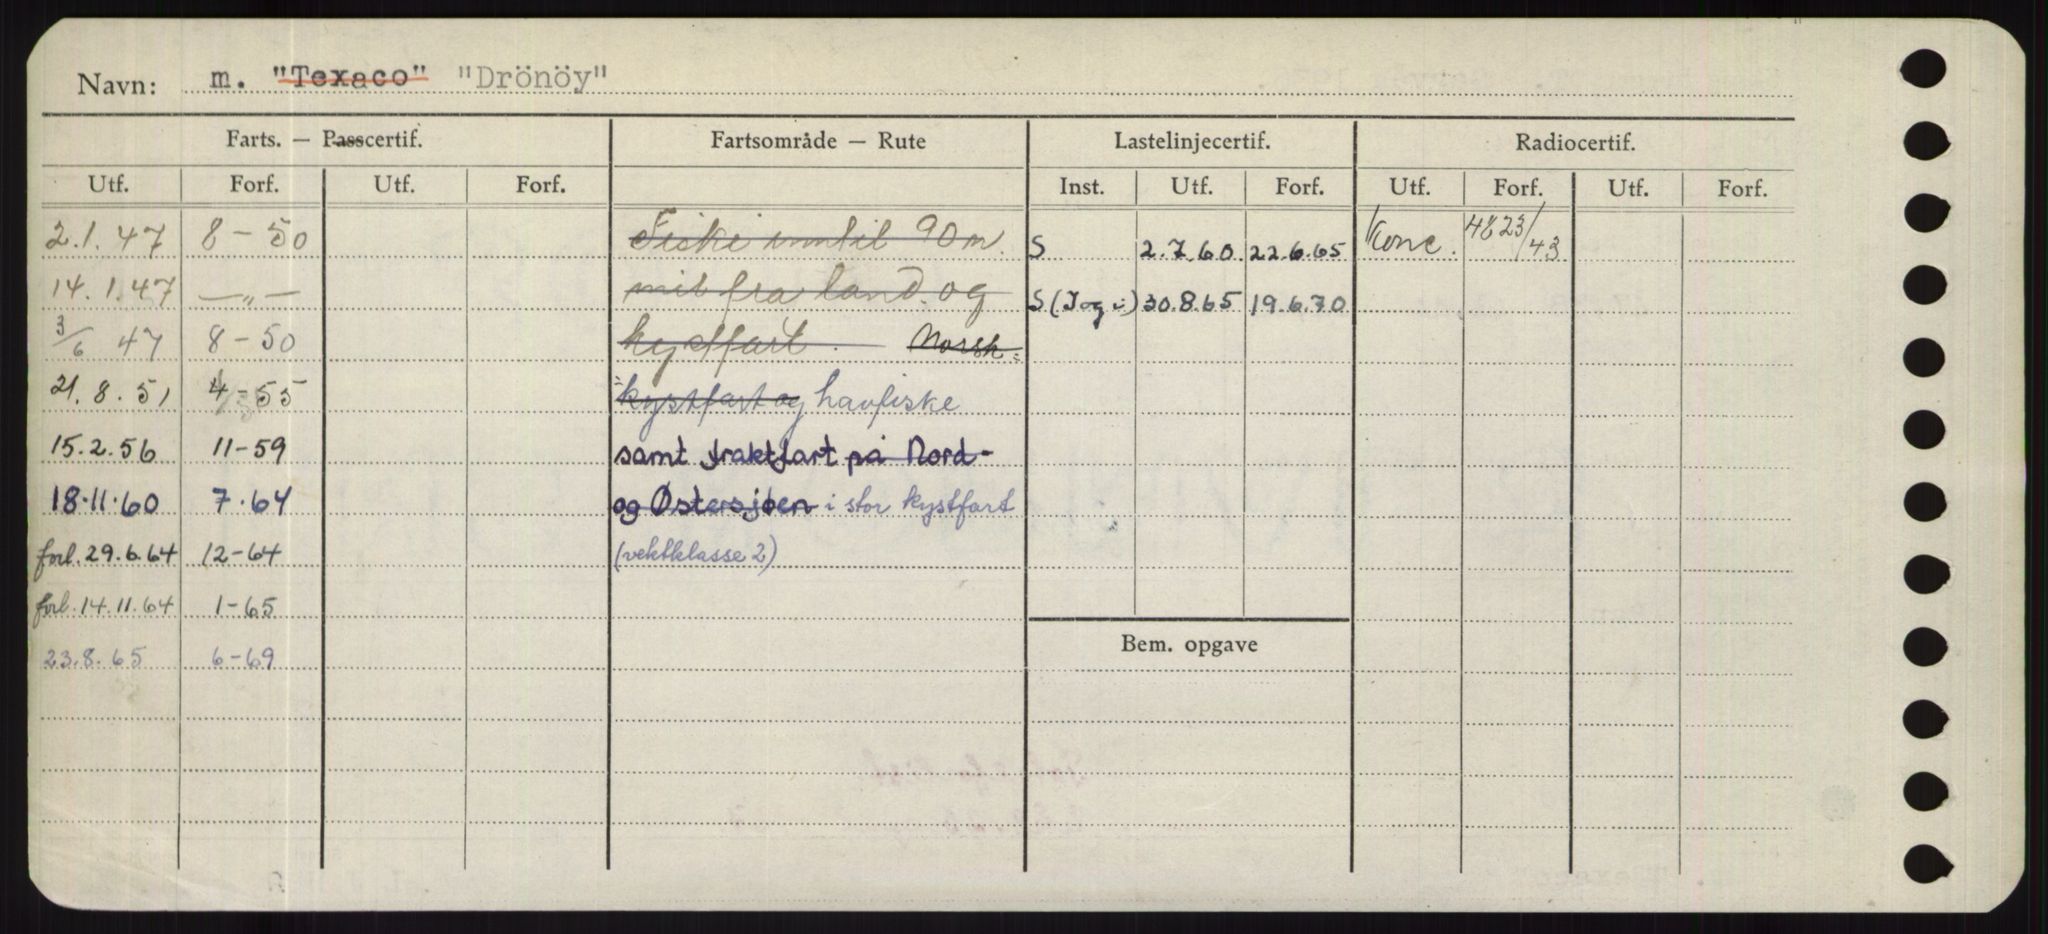 Navn: m. "Texaco" "Drönöy"
Farts. — Passcertif. Fartsområde — Rute Lastelinjecertif. Radiocertif.
Utf. Forf. Utf. Forf. Inst. Utf. Forf. Utf. Forf. Utf. Forf.
2.1.47 8-50 Fiske inntil 90 m. S 2.7.60 22.6.65 Konc. 4823/43
14.1.47 —„— mil fra land og S (I og i) 30.8.65 19.6.70
3/6 47 8-50 kystfart. Norsk=
21.8.51 4-55 =kystfart og havfiske
15.2.56 11-59 samt fraktfart på Nord-
18.11.60 7.64 og Østersjøen i stor kystfart
forl. 29.6.64 12-64 (vektklasse 2)
forl. 14.11.64 1-65
Bem. opgave
23.8.65 6-69